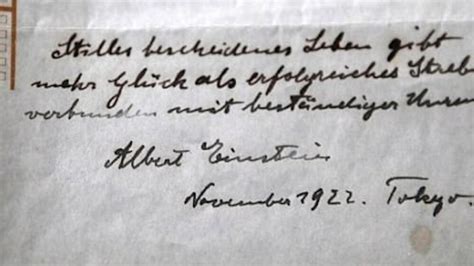 Stilles bescheidenes Leben gibt
mehr Glück als erfolgreiches Streb
verbunden mit beständiger Unru
Albert Einstein
November 1922. Tokyo.